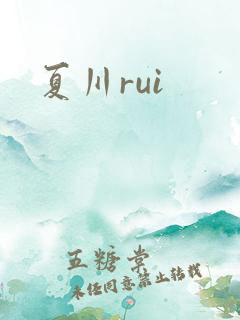 夏川rui
五糖棠
未经同意禁止转载